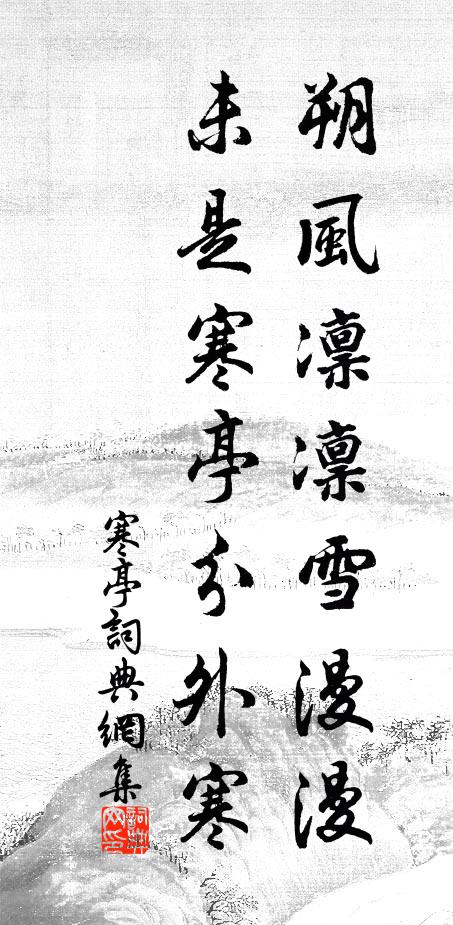 朔風凛凛雪漫漫
未是寒亭分外寒
寒亭詞典網集